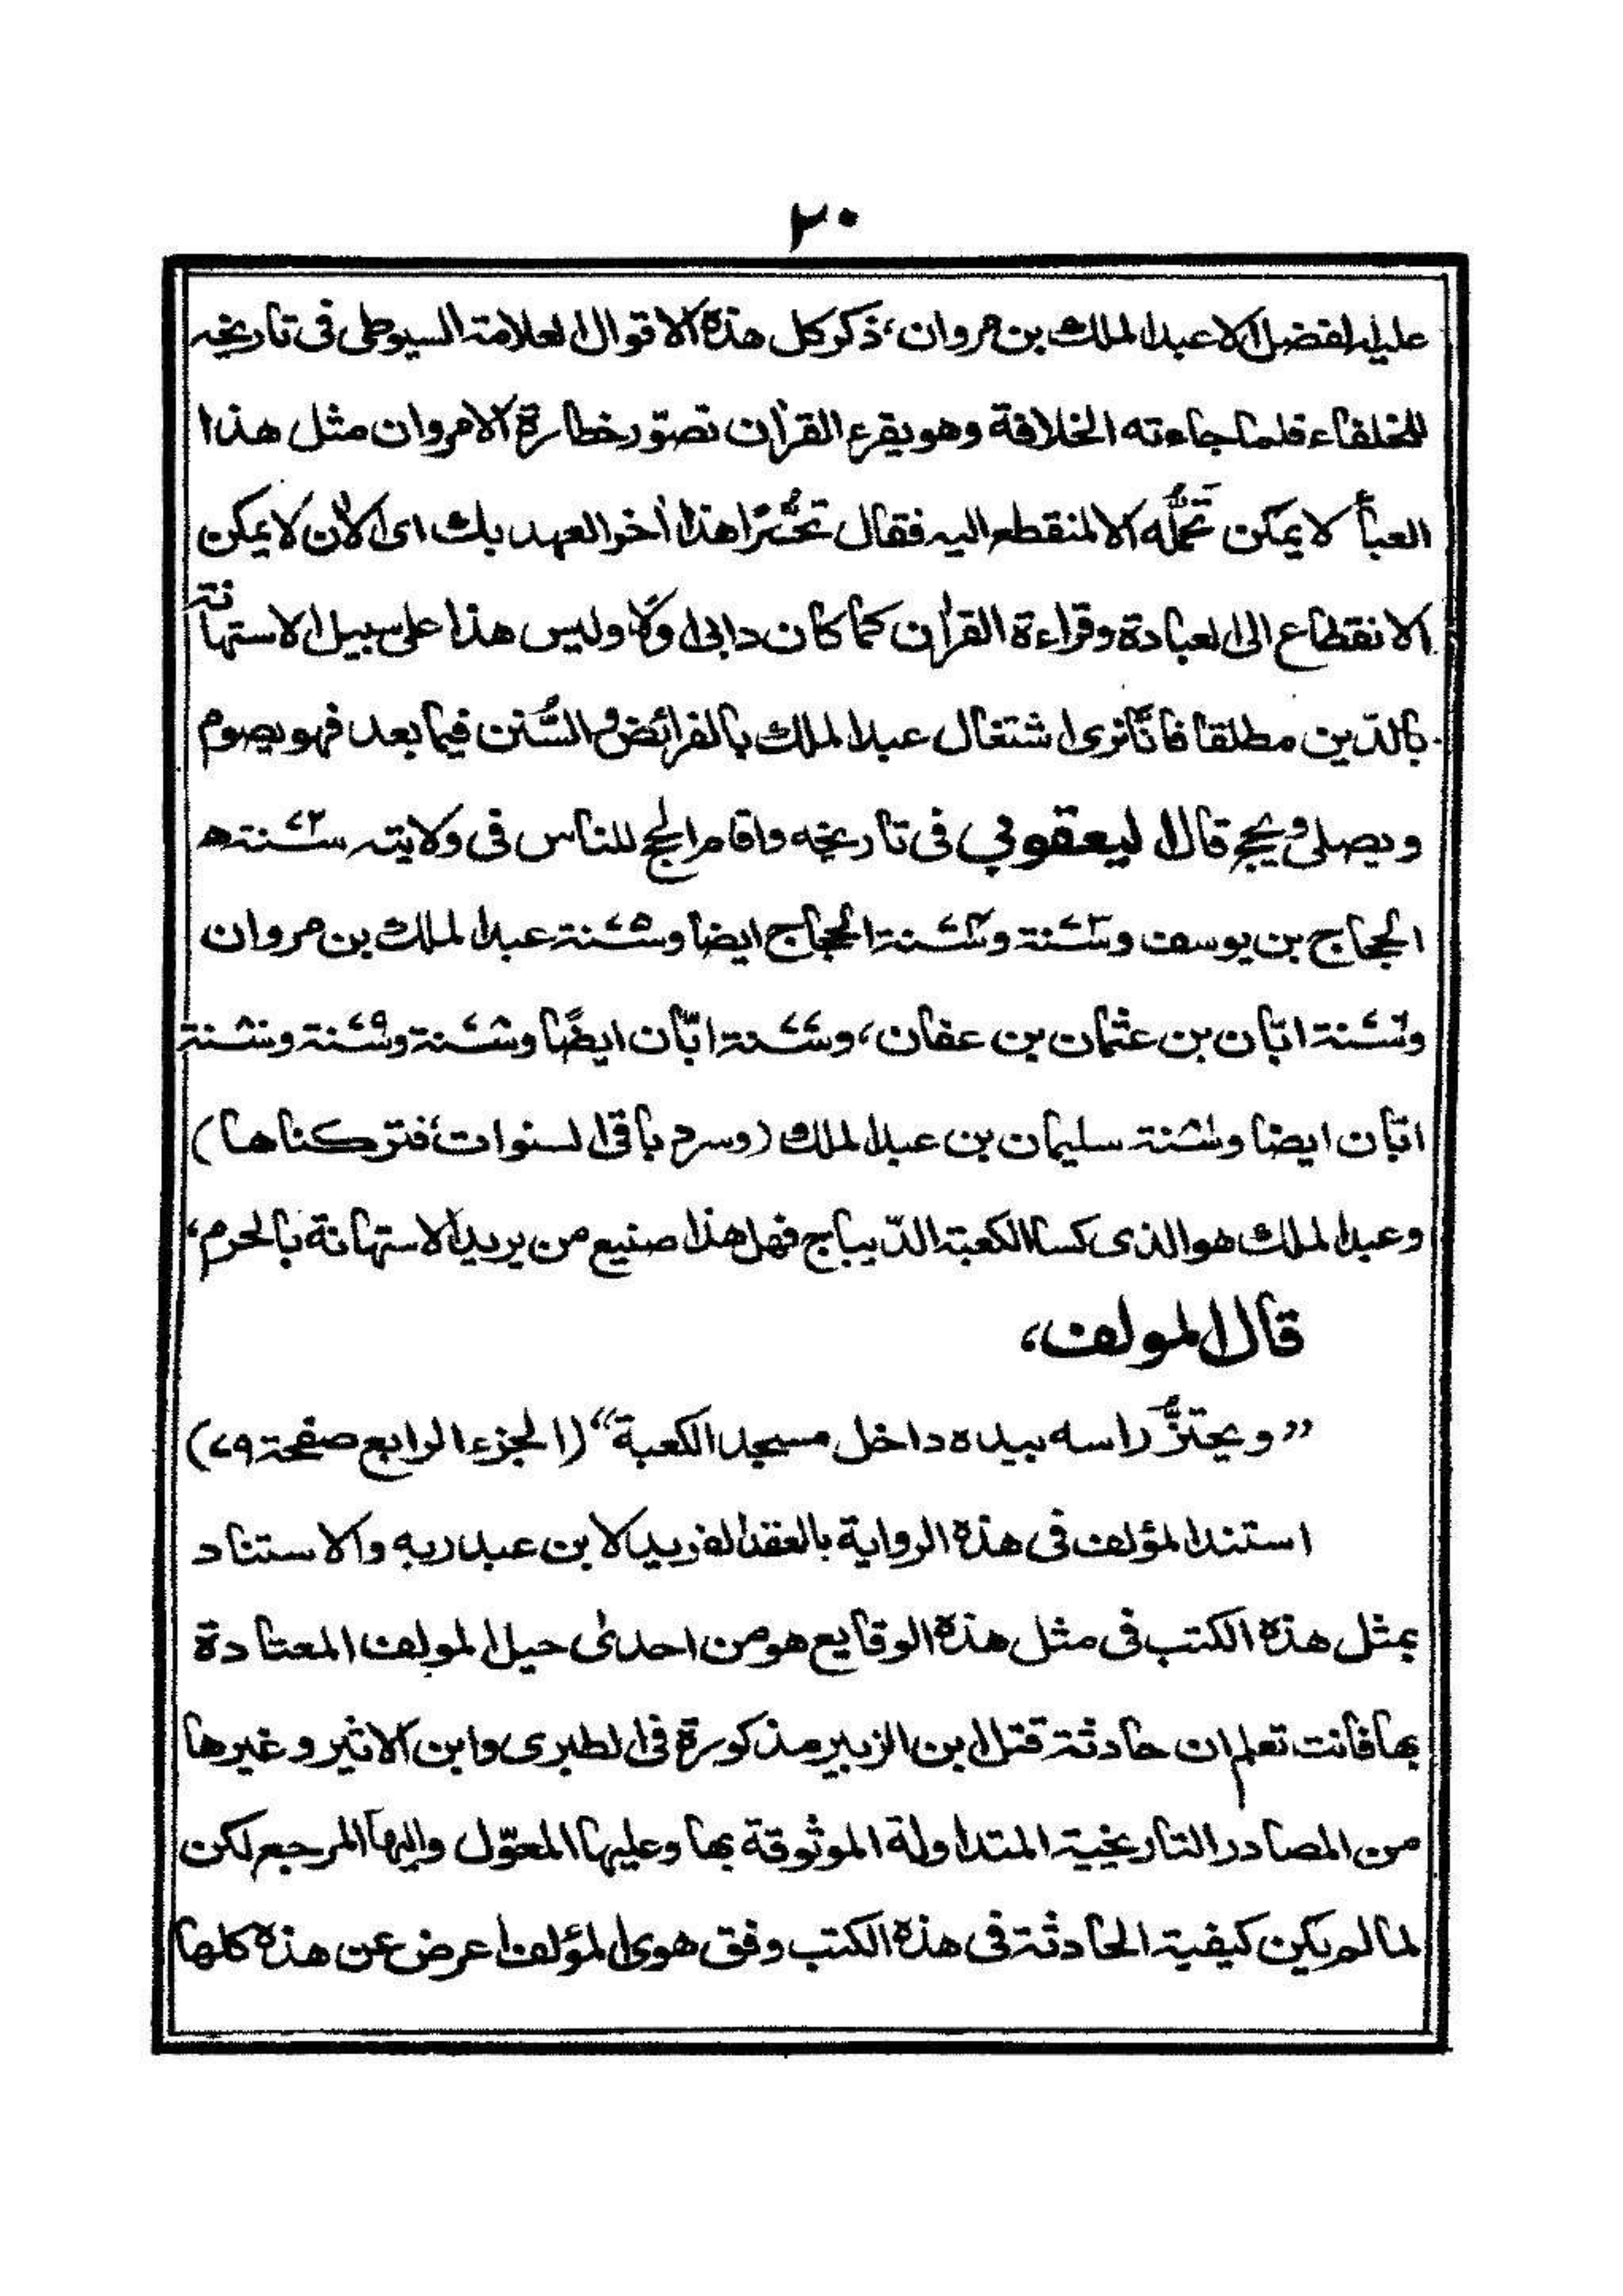 ٢٠
عليه الفضل الا عبد الملك بن مروان، ذكر كل هذه الاقوال العلامة السيوطى فى تاريخه
للخلفاء فلما جاءته الخلافة وهو يقرء القرأن تصوّر خطارة الامر وان مثل هذا
العبأ لا يمكن تحمُّله الا لمنقطع اليه فقال تحسُّرا هذا أخر العهد بك اى الأن لا يمكن
الانقطاع الى العبادة وقراءة القرأن كما كان دابى اوّلا وليس هذا على سبيل الاستهانة
بالدّين مطلقا فانّا نرى اشتغال عبد الملك بالفرائض والسُّنن فيما بعد فهو يصوم
ويصلى ويحج قال اليعقوبي فى تاريخه واقام الحج للناس فى ولايته سنة ٧٢ھ
الحجاج بن يوسف وسنة وسنة الحجاج ايضا وسنة ٧٥ عبد الملك بن مروان
وسنة ٧٦ ابّان بن عثمان بن عفان، وسنة ٧٧ ابّان ايضًا وسنة ٧٨ وسنة ٧٩ وسنة ٨٠
ابّان ايضا وسنة ٨١ سليمان بن عبد الملك (وسرد باقى السنوات، فتركناها)
وعبد الملك هو الذى كسا الكعبة الدّيباج فهل هذا صنيع من يريد الاستهانة بالحرم،
قال المولف،
”ويحتزُّ راسه بيده داخل مسجد الكعبة“ (الجزء الرابع صفحة ٧٩)
استند المؤلف فى هذه الرواية بالعقد الفريد لابن عبد ربه والاستناد
بمثل هذه الكتب فى مثل هذه الوقايع هو من احدى حيل المولف المعتادة
بها فانت تعلم ان حادثة قتل ابن الزبير مذكورة فى الطبرى وابن الاثير وغيرها
من المصادر التاريخية المتداولة الموثوقة بها وعليها المعوّل واليها المرجع لكن
لما لم يكن كيفية الحادثة فى هذه الكتب وفق هوى المؤلف اعرض عن هذه كلها